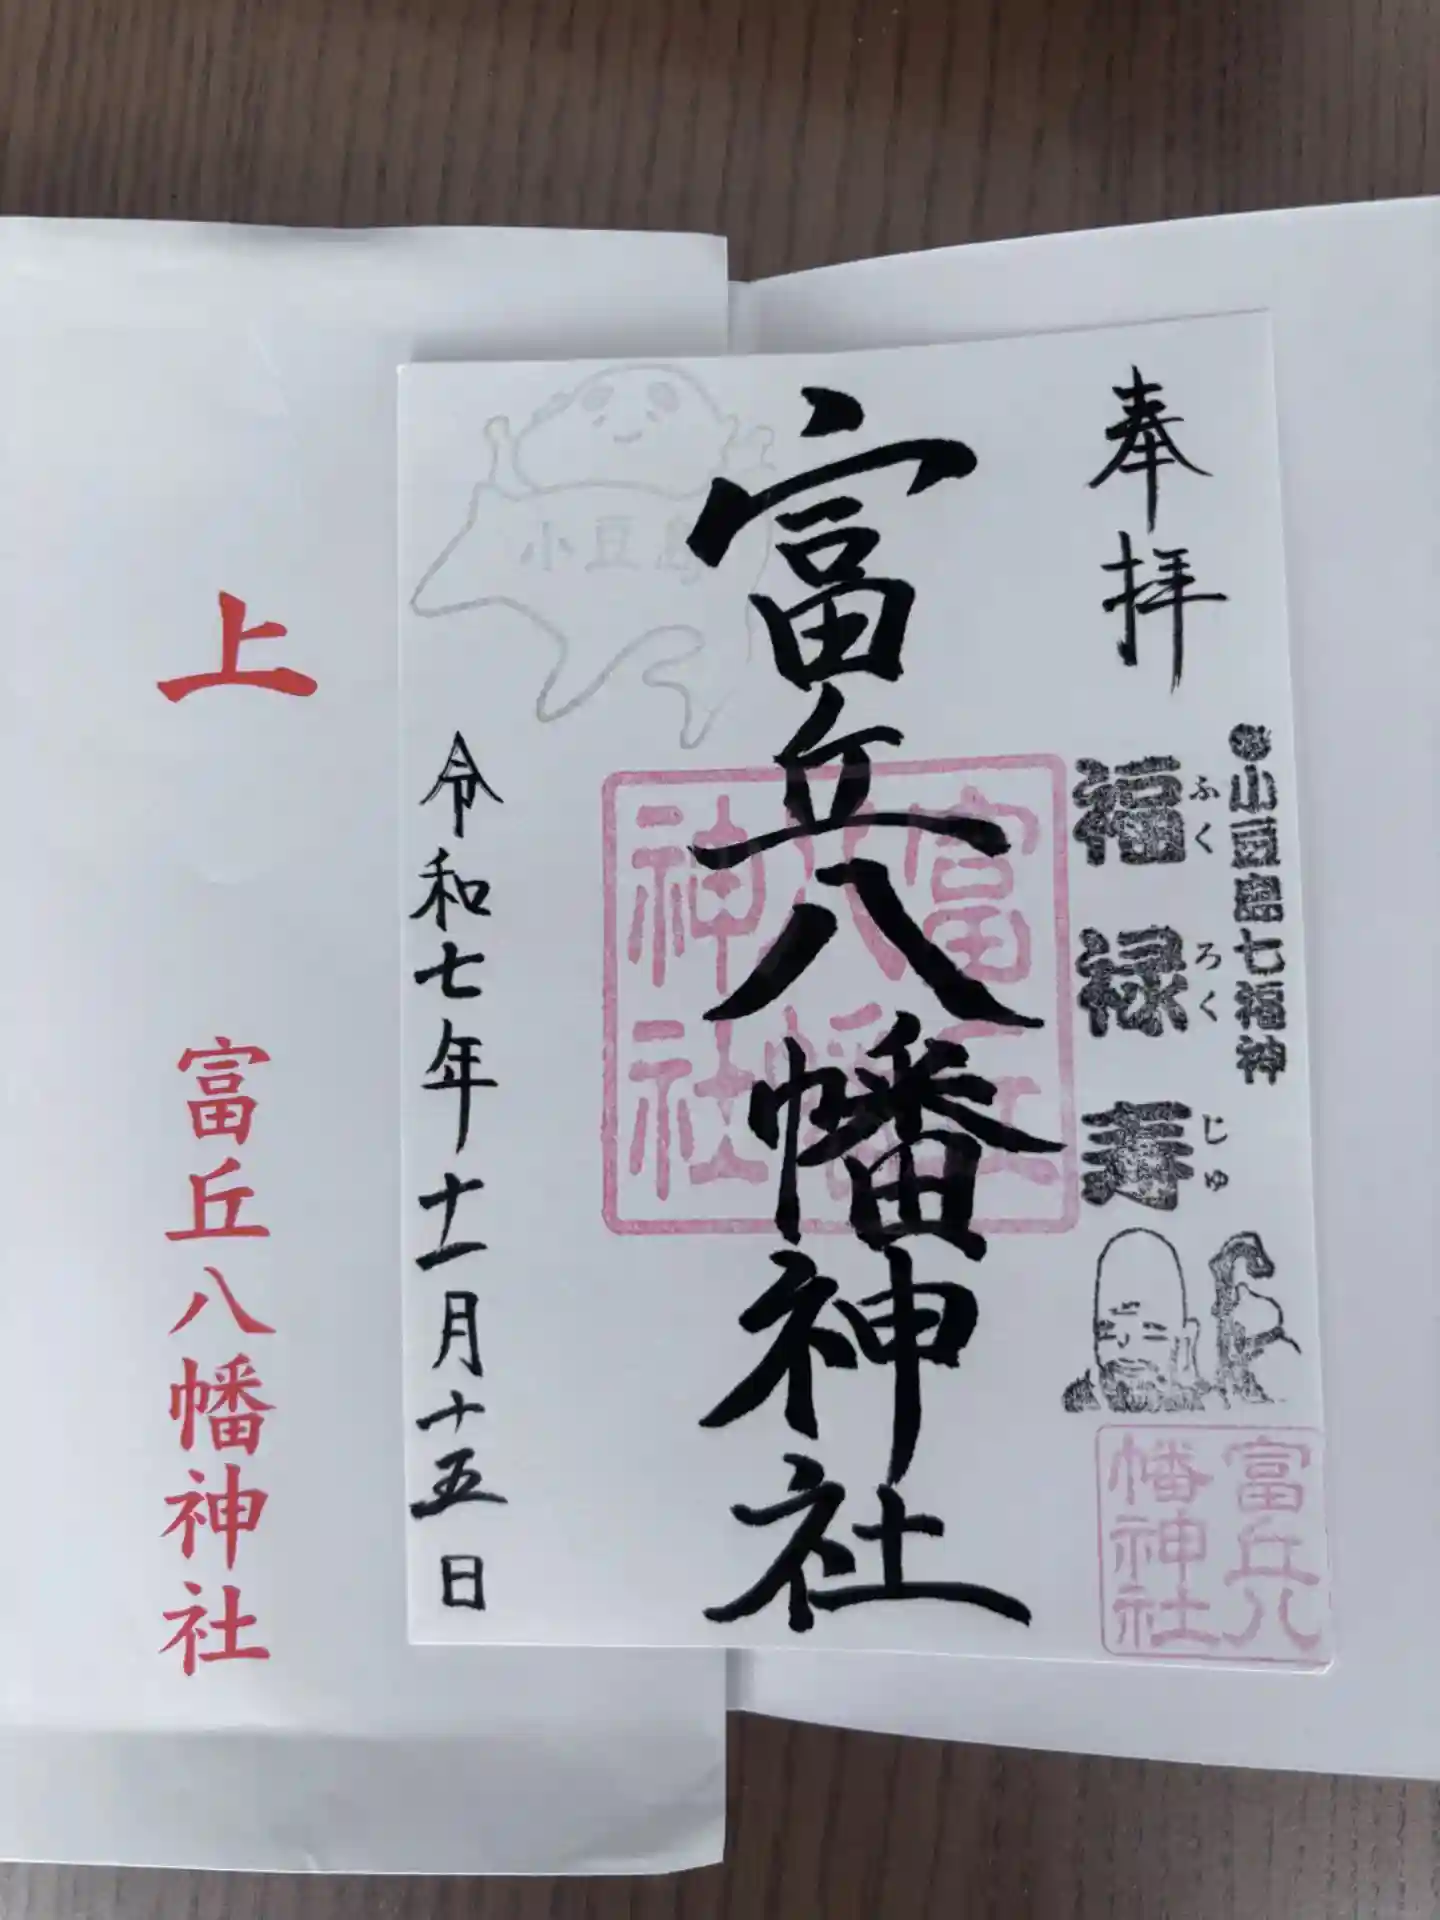 奉拝
小豆島七福神
福禄寿
ふくろくじゅ
富丘八幡神社
富丘八幡神社
富丘八幡神社
小豆島
令和七年十一月十五日
上
富丘八幡神社